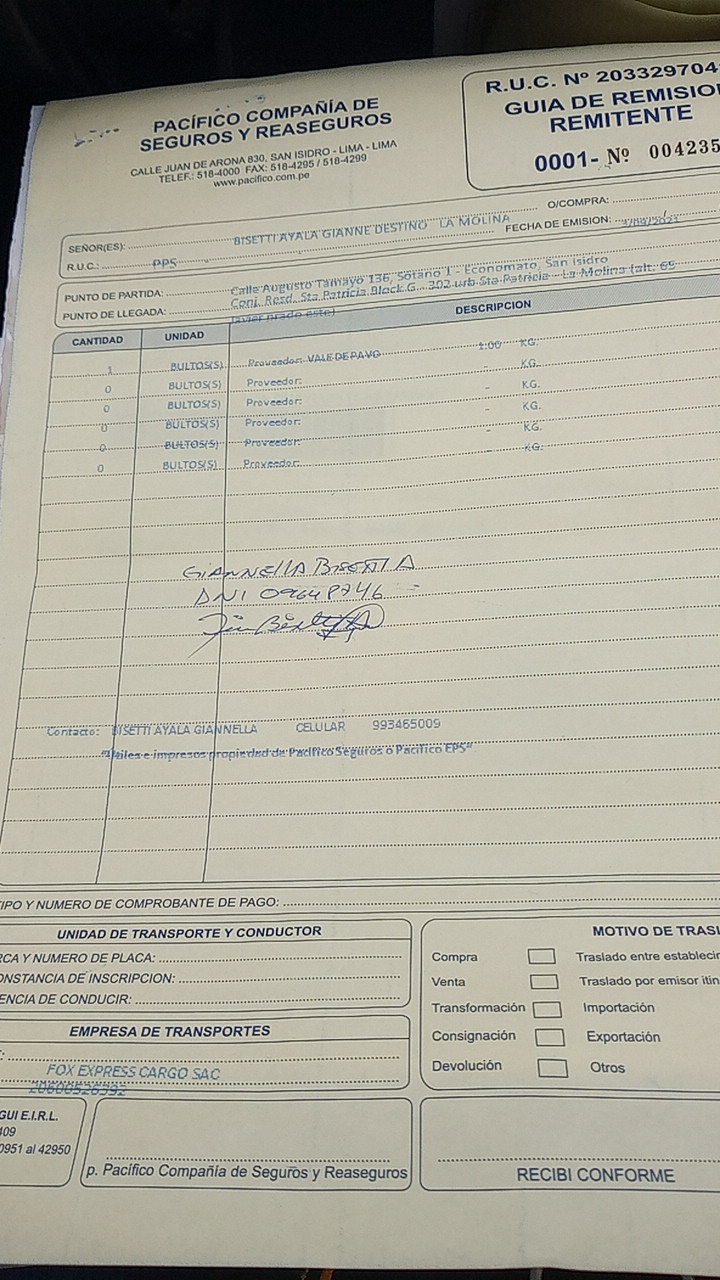 PACÍFICO COMPAÑÍA DE
SEGUROS Y REASEGUROS
CALLE JUAN DE ARONA 830, SAN ISIDRO - LIMA - LIMA
TELEF.: 518-4000 FAX: 518-4295 / 518-4299
www.pacifico.com.pe
R.U.C. Nº 203329704
GUIA DE REMISIO
REMITENTE
0001- Nº 004235
SEÑOR(ES): BISETTI AYALA GIANNE DESTINO LA MOLINA O/COMPRA:
R.U.C.: PPS FECHA DE EMISION:
PUNTO DE PARTIDA: Calle Augusto Tamayo 136, Sótano 1 - Economato, San Isidro
PUNTO DE LLEGADA: Conj. Resd. Sta Patricia Block G - 302 urb Sta Patricia - La Molina (alt. 65
javier prado este)
CANTIDAD UNIDAD DESCRIPCION
1 BULTOS(S) Proveedor: VALE DE PAVO 1.00 KG.
0 BULTOS(S) Proveedor: - KG.
0 BULTOS(S) Proveedor: - KG.
0 BULTOS(S) Proveedor: - KG.
0 BULTOS(S) Proveedor: - KG.
0 BULTOS(S) Proveedor: - KG.
GIANNELLA BISETTI A
DNI
Contacto: BISETTI AYALA GIANNELLA CELULAR 993465009
"Utiles e impresos propiedad de Pacifico Seguros o Pacifico EPS"
IPO Y NUMERO DE COMPROBANTE DE PAGO:
UNIDAD DE TRANSPORTE Y CONDUCTOR
RCA Y NUMERO DE PLACA:
ONSTANCIA DE INSCRIPCION:
ENCIA DE CONDUCIR:
EMPRESA DE TRANSPORTES
FOX EXPRESS CARGO SAC
20600526392
MOTIVO DE TRASL
Compra Traslado entre establecir
Venta Traslado por emisor itin
Transformación Importación
Consignación Exportación
Devolución Otros
GUI E.I.R.L.
409
0951 al 42950
p. Pacífico Compañía de Seguros y Reaseguros
RECIBI CONFORME